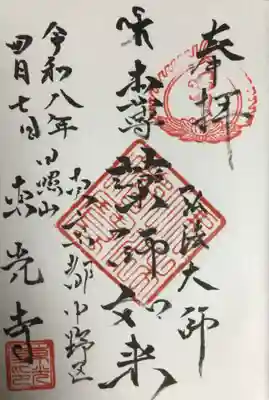 奉拝
弘法大師
御本尊 薬師如来
東京都中野区
日照山
東光寺
令和八年
四月七日